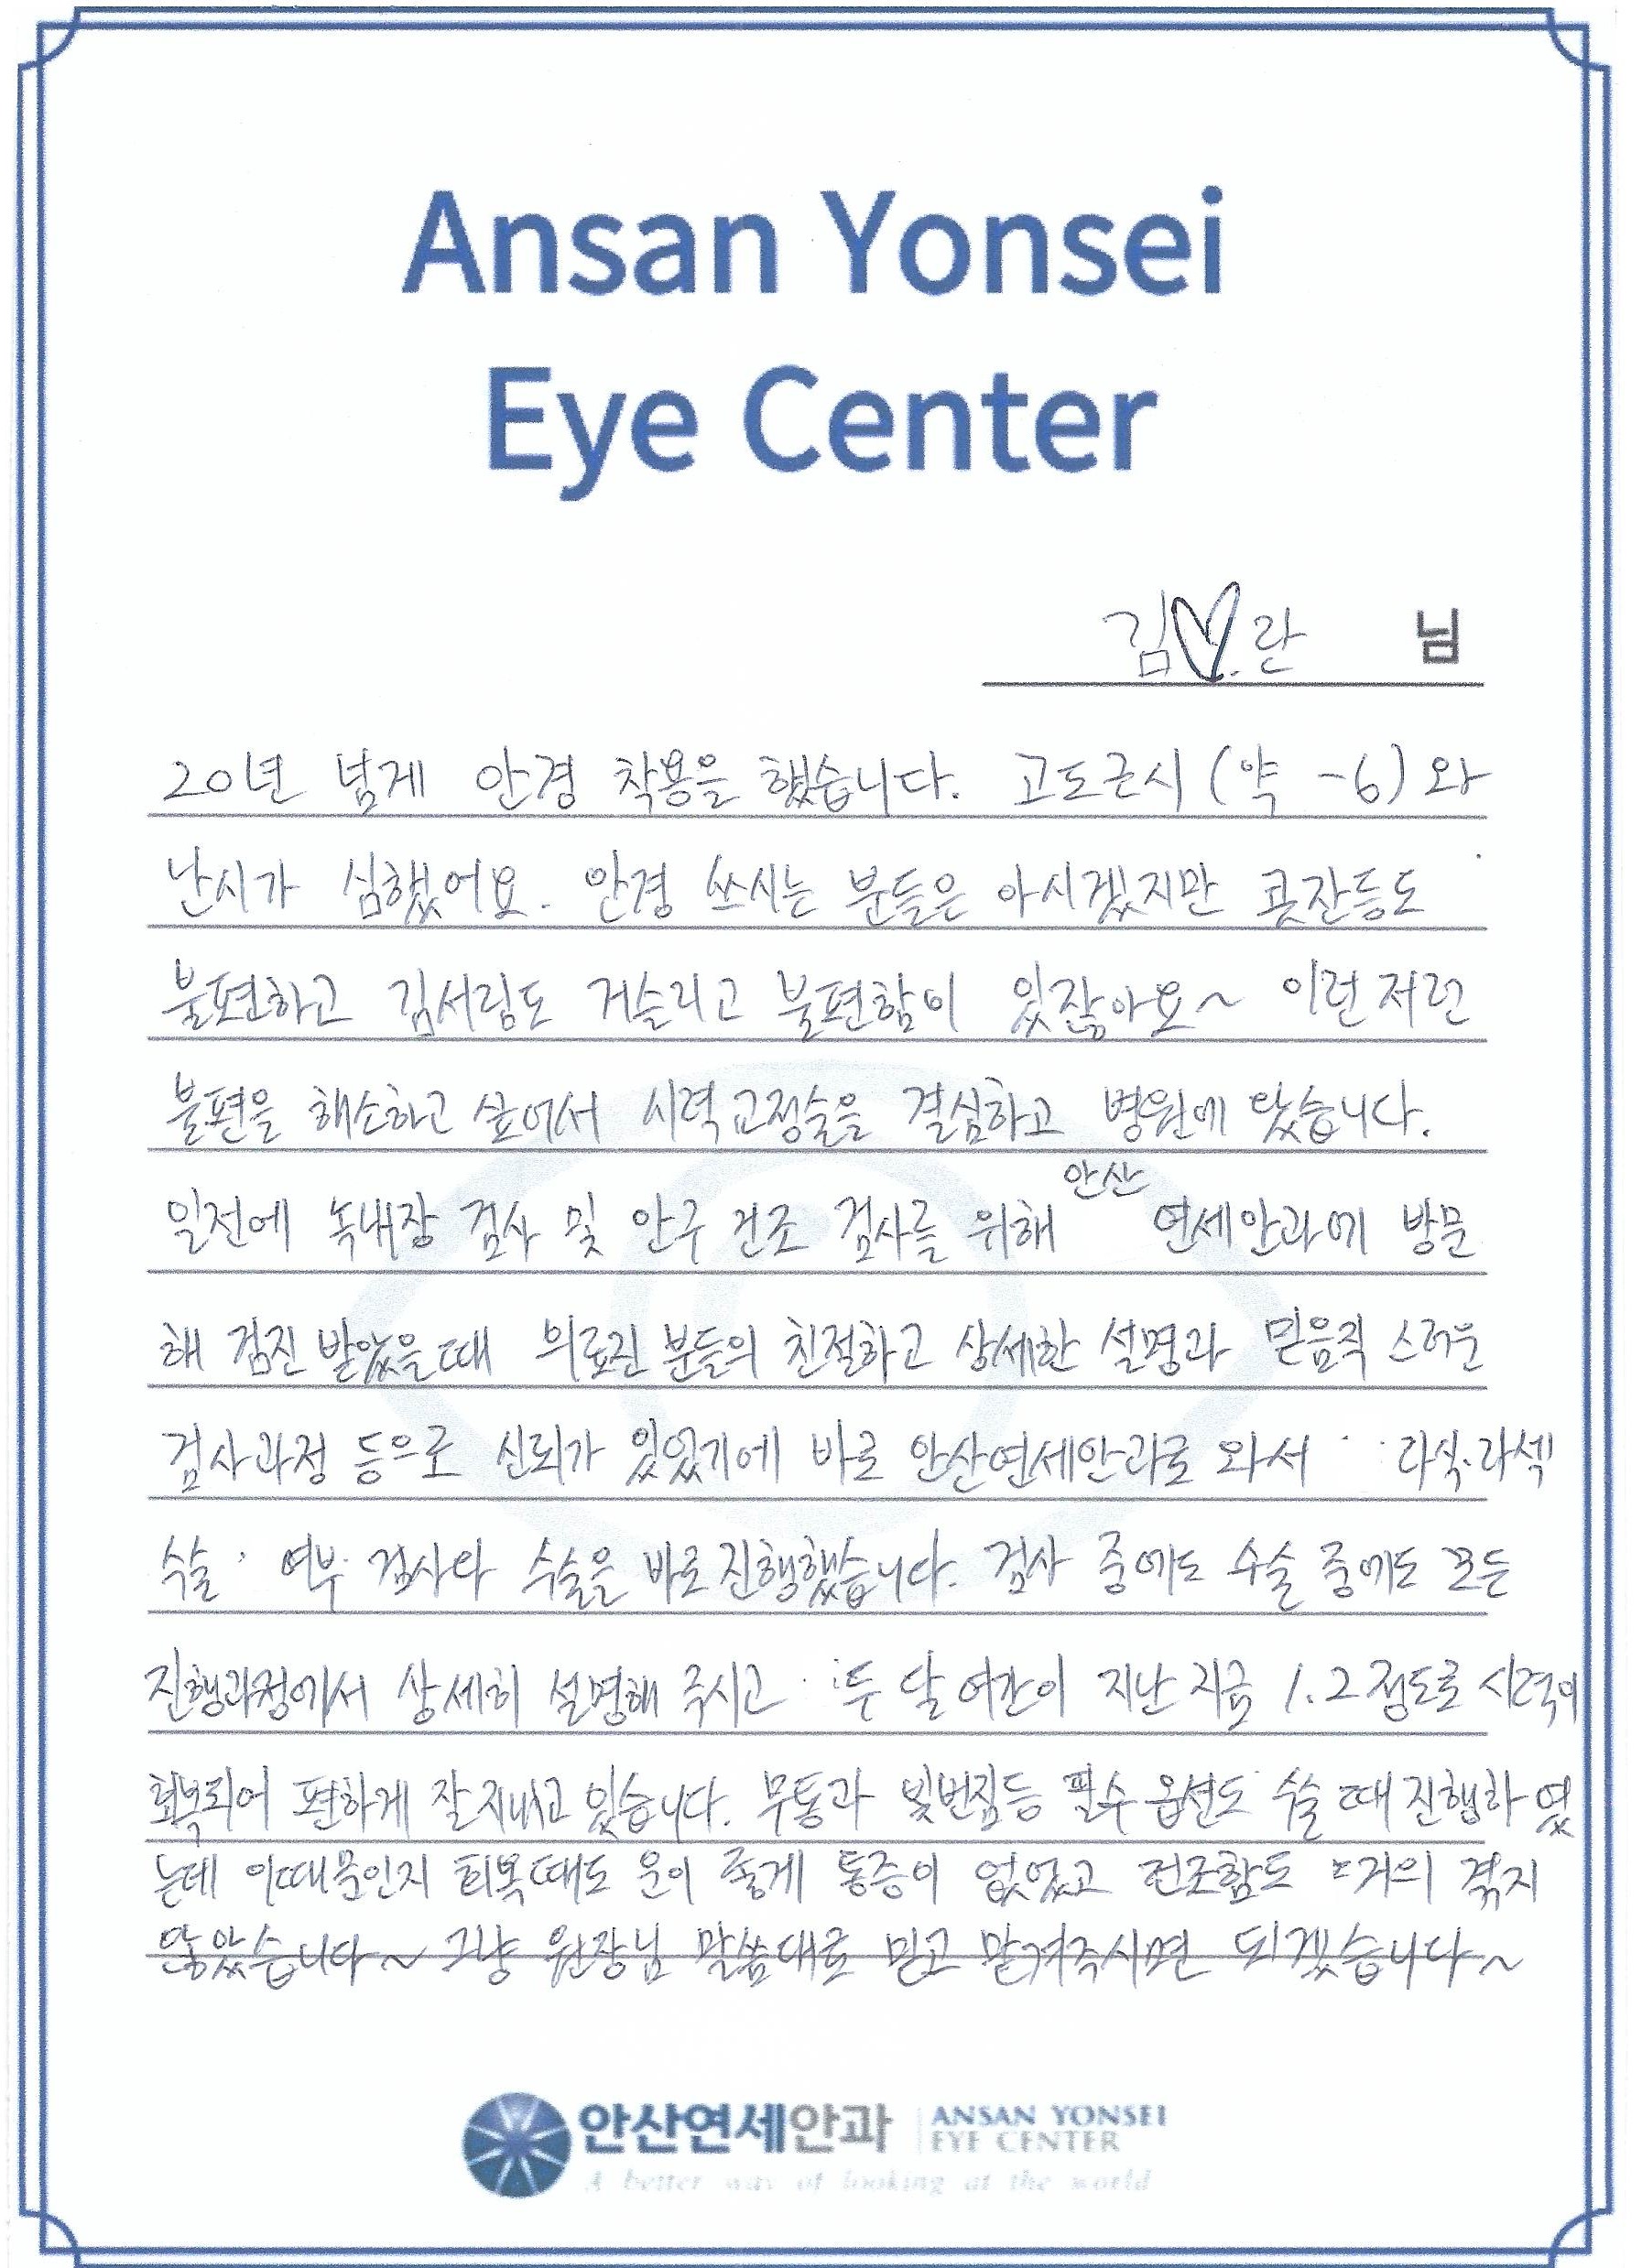 Ansan Yonsei
Eye Center
김♡란 님
20년 넘게 안경 착용을 했습니다. 고도근시(약 -6)와
난시가 심했어요. 안경 쓰시는 분들은 아시겠지만 콧잔등도
불편하고 김서림도 거슬리고 불편함이 있잖아요~ 이런저런
불편을 해소하고 싶어서 시력교정술을 결심하고 병원에 왔습니다.
일전에 녹내장 검사 및 안구 건조 검사를 위해 안산 연세안과에 방문
해 검진 받았을때 의료진 분들의 친절하고 상세한 설명과 믿음직 스러운
검사과정 등으로 신뢰가 있었기에 바로 안산연세안과로 와서 라식·라섹
수술 여부 검사와 수술을 바로 진행했습니다. 검사 중에도 수술 중에도 모든
진행과정에서 상세히 설명해 주시고 두 달 여간이 지난 지금 1.2 정도로 시력이
회복되어 편하게 잘 지내고 있습니다. 무통과 빛번짐등 필수 옵션도 수술 때 진행하였
는데 이때문인지 회복때도 운이 좋게 통증이 없었고 건조함도 거의 겪지
않았습니다~ 그냥 원장님 말씀대로 믿고 맡겨주시면 되겠습니다~
안산연세안과 ANSAN YONSEI
EYE CENTER
A better way of looking at the world